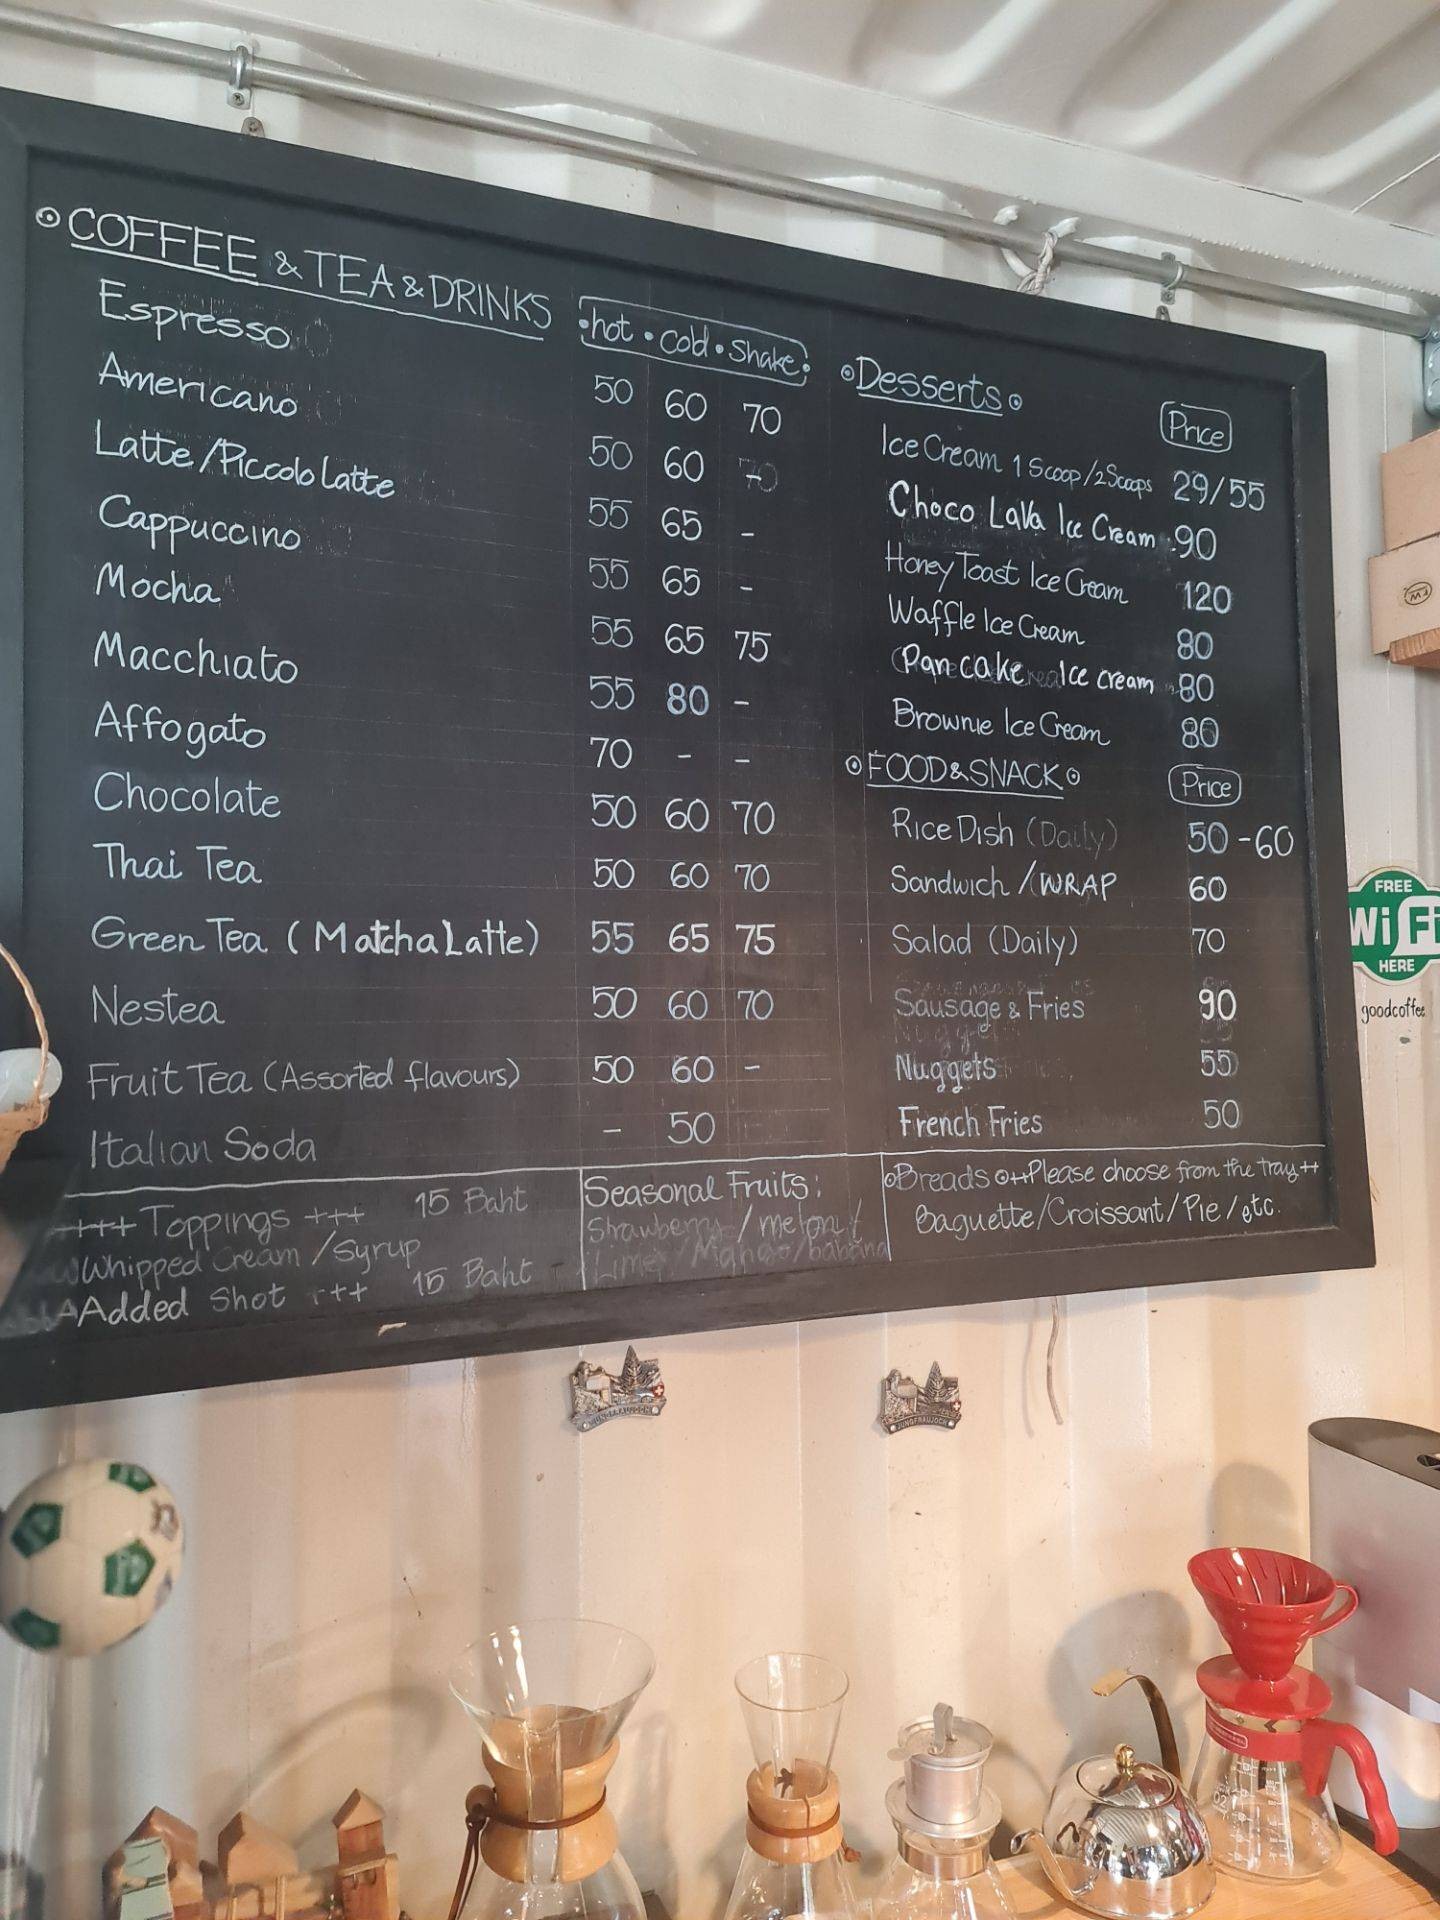 COFFEE & TEA & DRINKS • hot • Cold • Shake •
Espresso 50 60 70
Americano 50 60 70
Latte/Piccolo Latte 55 65 -
Cappuccino 55 65 -
Mocha 55 65 75
Macchiato 55 80 -
Affogato 70 - -
Chocolate 50 60 70
Thai Tea 50 60 70
Green Tea (Matcha Latte) 55 65 75
Nestea 50 60 70
Fruit Tea (Assorted flavours) 50 60 -
Italian Soda - 50
+++ Toppings +++ 15 Baht
Whipped Cream / Syrup
Added Shot +++ 15 Baht
Seasonal Fruits:
Strawberry / melon /
Lime / Mango / banana
Desserts
Price
Ice Cream 1 Scoop/2 Scoops 29/55
Choco Lava Ice Cream 90
Honey Toast Ice Cream 120
Waffle Ice Cream 80
Pancake Ice cream 80
Brownie Ice Cream 80
FOOD & SNACK Price
Rice Dish (Daily) 50-60
Sandwich / WRAP 60
Salad (Daily) 70
Sausage & Fries 90
Nuggets 55
French Fries 50
Breads ++Please choose from the tray++
Baguette/Croissant/Pie/etc.
FREE
WiFi
HERE
goodcoffee
JUNGFRAUJOCH
JUNGFRAUJOCH